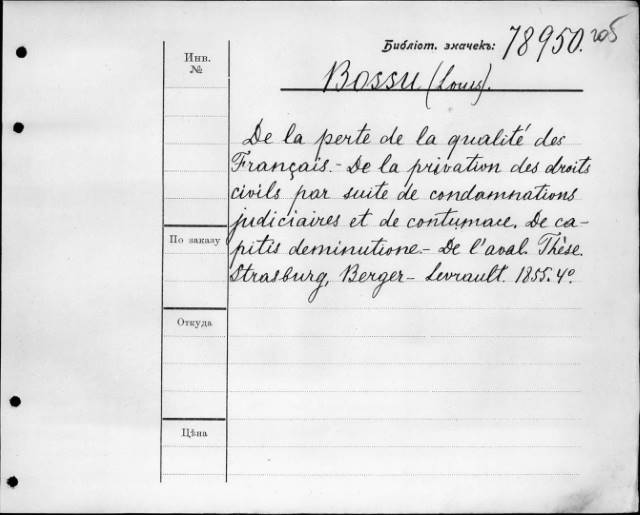 Библіот. значекъ: 78950.
Инв.
№
Bossu (Louis).
De la perte de la qualité des
Français. – De la privation des droits
civils par suite de condamnations
judiciaires et de contumace. De ca-
pitis deminutione. – De l'aval. Thèse.
Strasburg, Berger – Levrault. 1855. 4°.
По заказу
Откуда
Цѣна